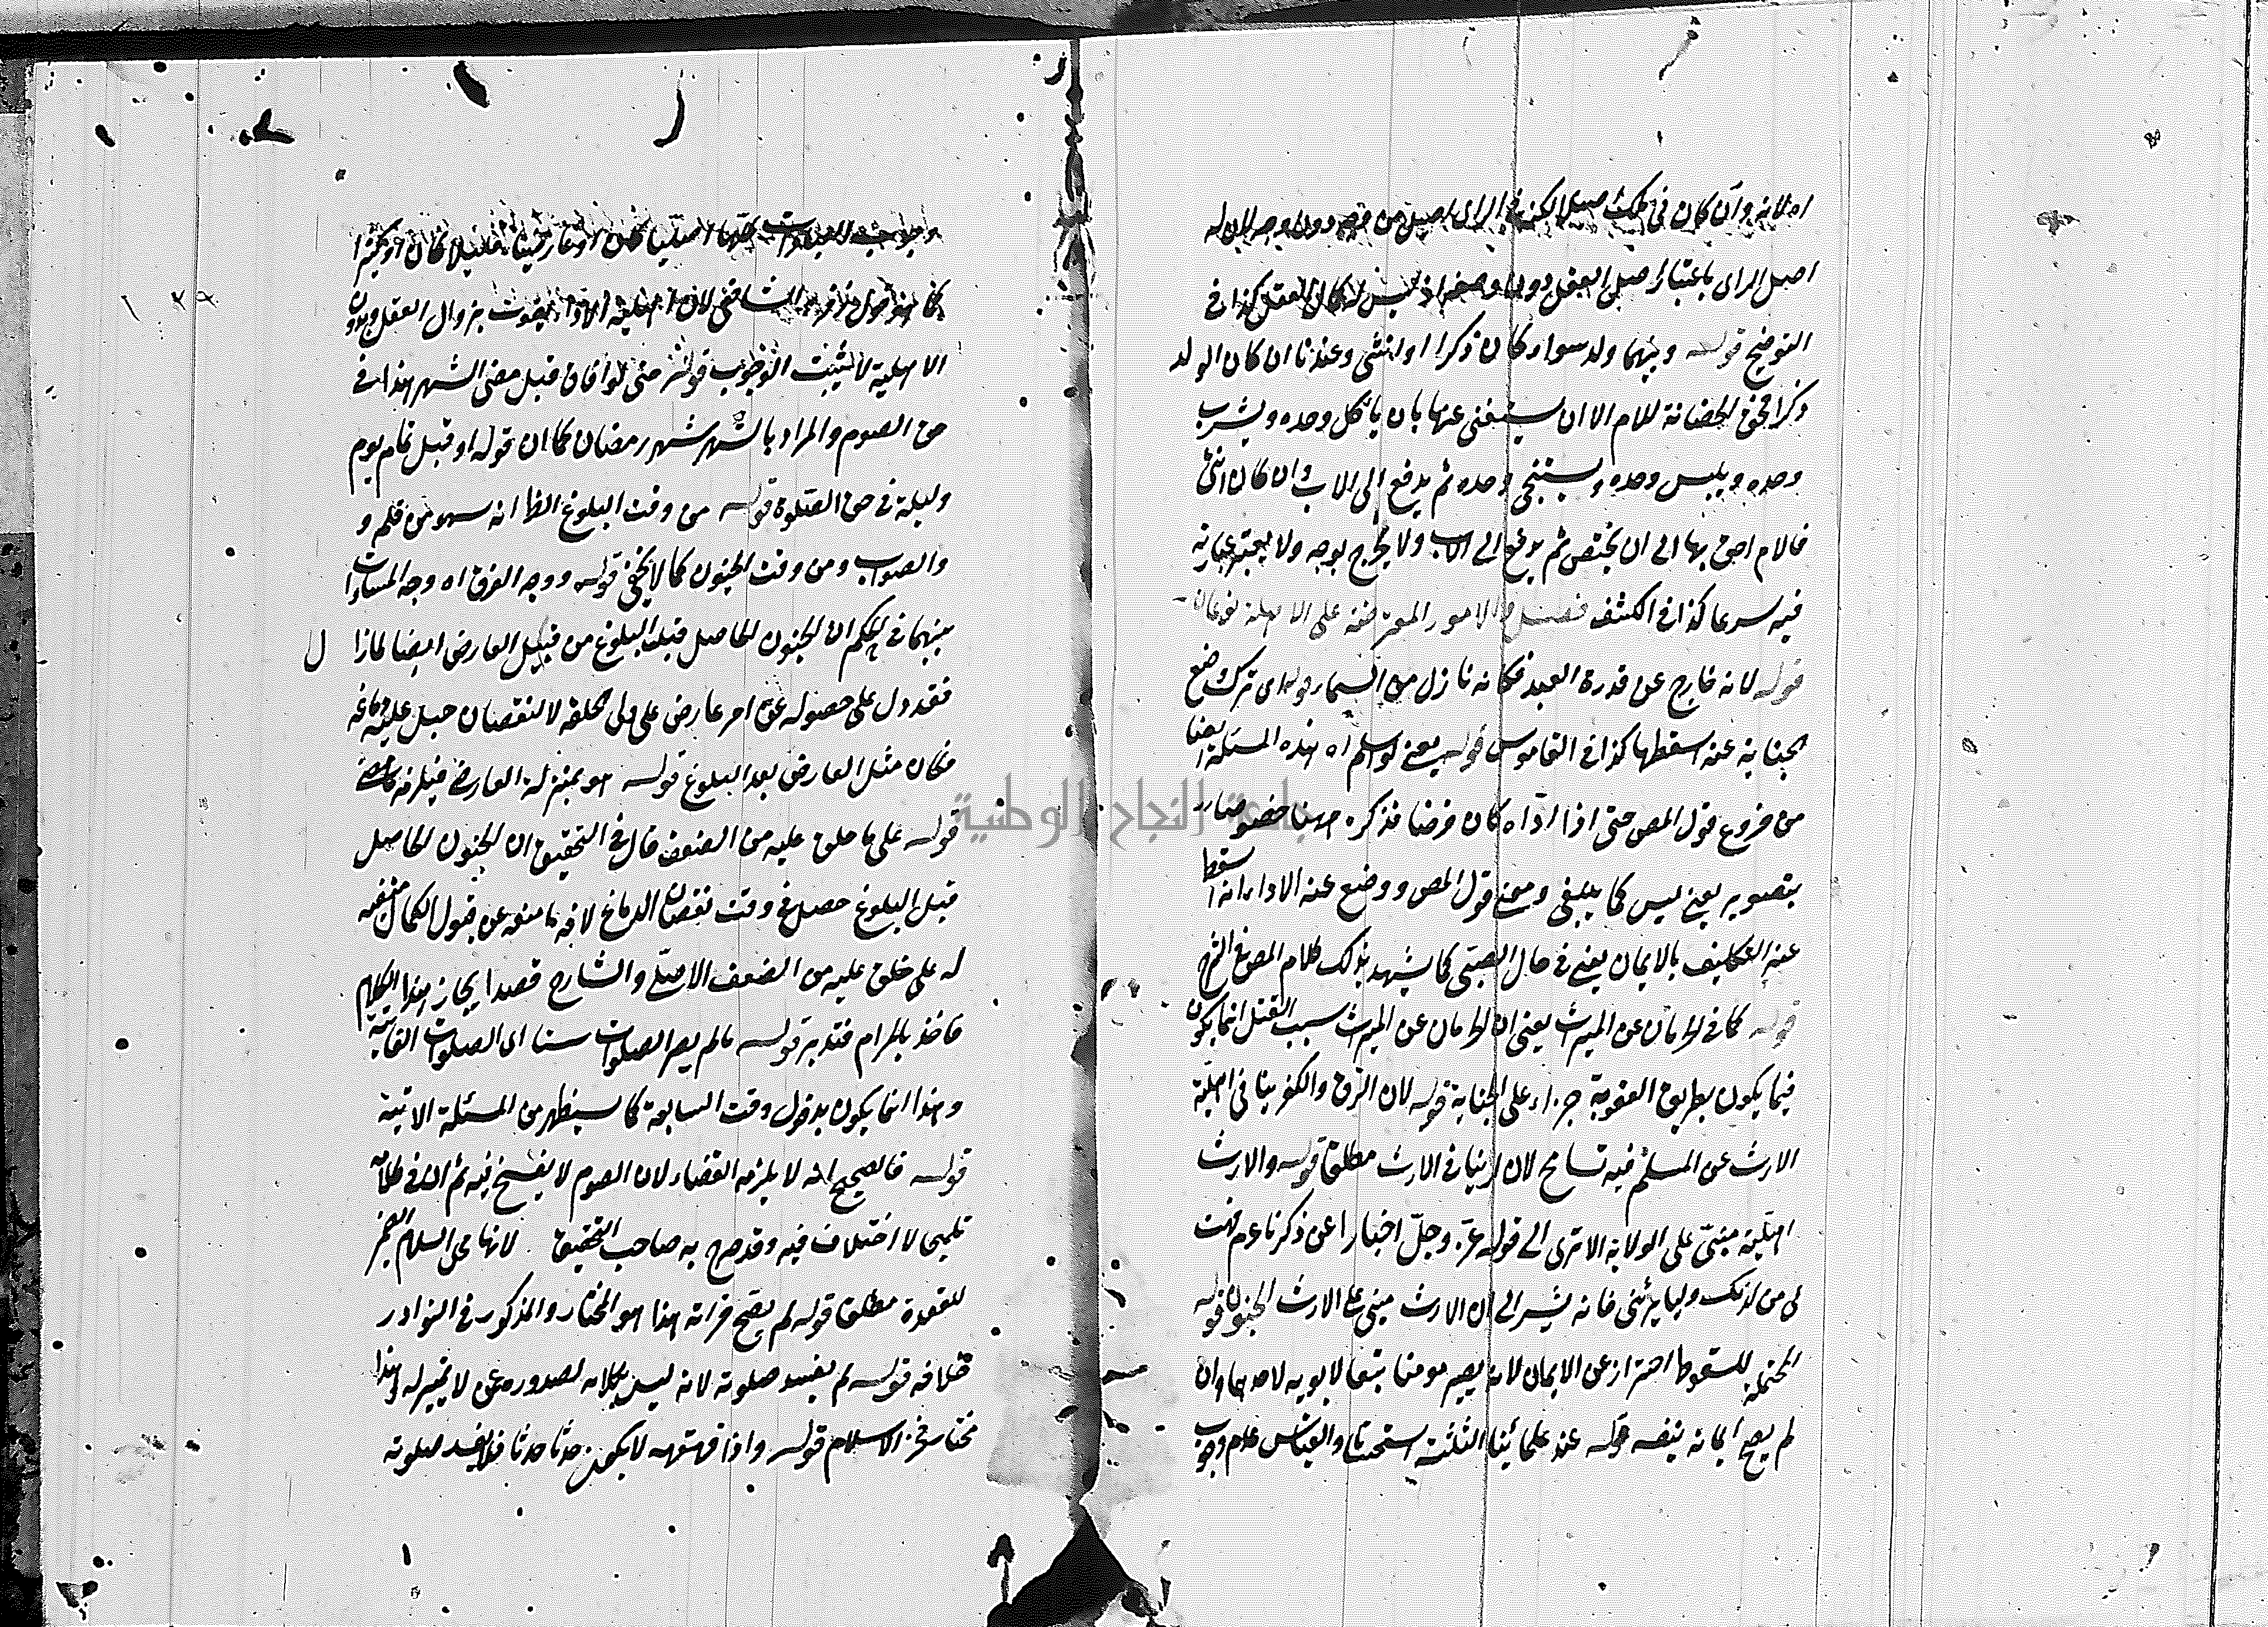 اه لانه وان كان في ذلك اصيلا لكنه في الراى اصيل من وجه دون وجه لان له
اصل الراى باعتبار اصل العقل دون وصفه اذ ليس له كمال العقل كذا في
التوضيح قوله وبينهما ولد سواء كان ذكرا او انثى وعندنا ان كان الولد
ذكرا فحق الحضانة للام الا ان يستغنى عنها بان يأكل وحده ويشرب
وحده ويلبس وحده ويستنجى وحده ثم يدفع الى الاب وان كان انثى
فالام احق بها الى ان تحيض ثم يدفع الى الاب ولا يخرج بوجه ولا يعتبر عبارته
فيه شرعا كذا في الكشف فصل الامور المعترضة على الاهلية نوعان
قوله لانه خارج عن قدرة العبد فكانه نازل من السماء قوله اى ترك وضع
الجناية عنه اسقطها كذا في القاموس قوله يعنى لو اسلم اه هذه المسئلة ايضا
من فروع قول المص حتى اذا اداه كان فرضا فذكره ههنا خصوصا
بتصوير يعنى ليس كما ينبغى ومعنى قول المص ووضع عنه الاداء انه اسقط
عنه التكليف بالايمان يعنى في حال الصبى كما يشهد بذلك كلام المص في الشرح
قوله كما في الحرمان عن الميرث يعنى ان الحرمان عن الميرث بسبب القتل انما يكون
فيما يكون بطريق العقوبة جزاء على الجناية قوله لان الرق والكفر ينافى اهلية
الارث عن المسلم فيه تسامح لان الرق ينافى الارث مطلقا قوله والارث
اهلية مبنى على الولاية الا ترى الى قوله عز وجل اخبارا عن ذكريا عم فهب
لى من لدنك وليا يرثنى فانه يشير الى ان الارث مبنى على الارث الجنون قوله
المحتملة للسقوط احتراز عن الايمان لانه يصير مومنا تبعا لابويه لاحدهما وان
لم يصح ايمانه بنفسه قوله عند علمائنا الثلثة استحسانا والقياس عدم وجوب
العبادات اصليا كان او عارضيا قليلا كان او كثيرا
كما هو قول زفر والشافعى لان اهلية الاداء يفوت بزوال العقل وبدون
الاهلية لا يثبت الوجوب قوله حتى لو افاق قبل مضى الشهر هذا في
حق الصوم والمراد بالشهر شهر رمضان كما ان قوله او قبل تمام يوم
وليلة في حق الصلوة قوله من وقت البلوغ الظا انه سهو من قلم و
والصواب ومن وقت الجنون كما لا يخفى قوله ووجه الفرق اه وجه المساوات
بينهما في الحكم ان الجنون الحاصل قبل البلوغ من قبيل العارض ايضا لما زال
فقد دل على حصوله عن امر عارض على اصل الخلقه لا لنقصان جبل عليه دماغه
فكان مثل العارض بعد البلوغ قوله هو بمنزلة العارض فيلزمه ما مضى
قوله على ما خلق عليه من الضعف قال في التحقيق ان الجنون الحاصل
قبل البلوغ حصل في وقت نقصان الدماغ لافة مانعة عن قبول الكمال مبقية
له على خلق عليه من الضعف الاصلى والشارح قصد ايجاز هذا الكلام
فاخذ بالمرام فتدبر قوله ما لم يصر الصلوات ستا اى الصلوات الفائتة
وهذا انما يكون بدخول وقت السابعة كما سيظهر من المسئلة الاتية
قوله فالصحيح انه لا يلزمه القضاء لان الصوم لا يفتتح فيه ثم ان في كلامه
تلميحا لا اختلاف فيه وقد صرح به صاحب التحقيق لانها محل السلام الغير
للقعدة مطلقا قوله لم يصح قرائه هذا هو المختار والمذكور في النوادر
خلافه قوله لم يفسد صلوته لانه ليس بكلام لصدوره عن لا تميز له وهذا
مختار فخر الاسلام قوله واذا قهقهه لا يكون حدثا فلا يفسد صلوته
جامعة النجاح الوطنية